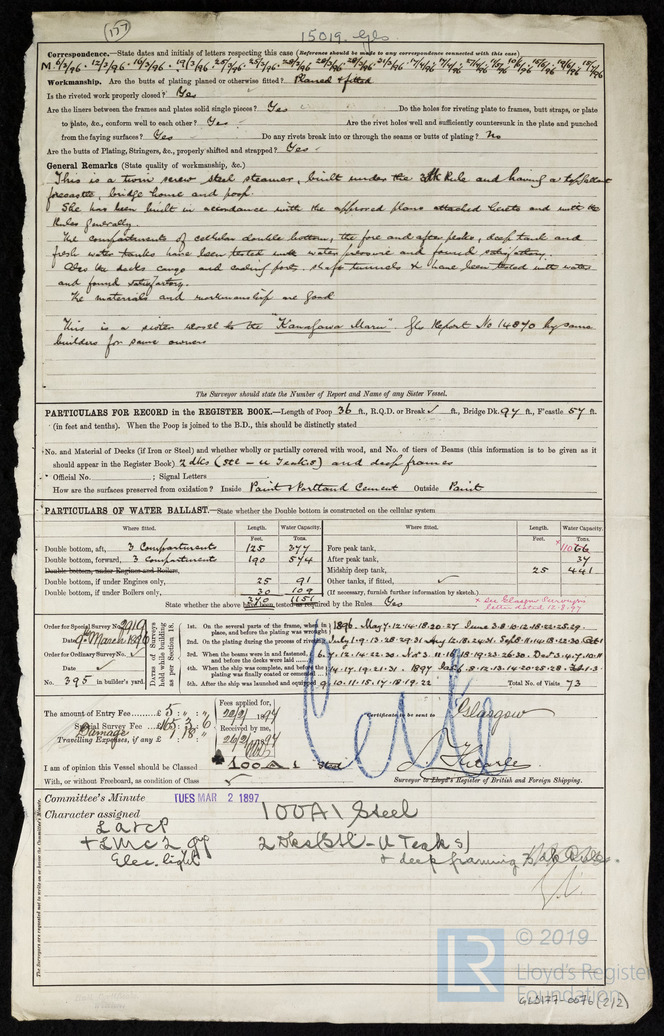 (157)
15019 Gls
Correspondence.—State dates and initials of letters respecting this case (Reference should be made to any correspondence connected with this case)
Workmanship. Are the butts of plating planed or otherwise fitted? Planed & fitted
Is the riveted work properly closed? Yes
Are the liners between the frames and plates solid single pieces? Yes Do the holes for riveting plate to frames, butt straps, or plate
to plate, &c., conform well to each other? Yes Are the rivet holes well and sufficiently countersunk in the plate and punched
from the faying surfaces? Yes Do any rivets break into or through the seams or butts of plating? No
Are the butts of Plating, Stringers, &c., properly shifted and strapped? Yes
General Remarks (State quality of workmanship, &c.)
This is a twin screw steel steamer, built under the 3 dk Rule and having a topgallant
forecastle, bridge house and poop.
She has been built in accordance with the approved plans attached hereto and with the
Rules generally.
The compartments of cellular double bottom, the fore and after peaks, deep tank and
fresh water tanks have been tested with water pressure and found satisfactory.
Also the decks cargo and coaling ports, shaft tunnels & have been tested with water
and found satisfactory.
The materials and workmanship are good
This is a sister vessel to the "Kanagawa Maru" Gls Report No 14870 by same
builders for same owners
The Surveyor should state the Number of Report and Name of any Sister Vessel.
PARTICULARS FOR RECORD in the REGISTER BOOK.—Length of Poop 36 ft., R.Q.D. or Break ✓ ft., Bridge Dk. 97 ft., F'castle 57 ft.
(in feet and tenths). When the Poop is joined to the B.D., this should be distinctly stated
No. and Material of Decks (if Iron or Steel) and whether wholly or partially covered with wood, and No. of tiers of Beams (this information is to be given as it
should appear in the Register Book) 2 dks (Stl - U Teak s) and deep frames
Official No. ; Signal Letters
How are the surfaces preserved from oxidation? Inside Paint & Portland Cement Outside Paint
PARTICULARS OF WATER BALLAST.—State whether the Double bottom is constructed on the cellular system
Where fitted. Length. Water Capacity. Where fitted. Length. Water Capacity.
Feet. Tons. Feet. Tons.
Double bottom, aft, 3 Compartments 125 377 Fore peak tank, 110 66
Double bottom, forward, 3 Compartments 190 574 After peak tank, 34
Double bottom, under Engines and Boilers, Midship deep tank, 25 441
Double bottom, if under Engines only, 25 91 Other tanks, if fitted, ✓
Double bottom, if under Boilers only, 30 109 (If necessary, furnish further information by sketch.)
370 1151
State whether the above have been tested as required by the Rules Yes
× see Glasgow Surveyors
letter dated 12-8-97
Order for Special Survey No. 2919
Date 9th March 1896
Order for Ordinary Survey No. ✓
Date ✓
No. 395 in builder's yard.
Dates of Surveys held while building as per Section 18.
1st. On the several parts of the frame, when in place, and before the plating was wrought
2nd. On the plating during the process of
3rd. When the beams were in and fastened, and before the decks were laid
4th. When the ship was complete, and before the plating was finally coated or cemented
5th. After the ship was launched and equipped 9.10.11.15.17.18.19.22 Total No. of Visits 73
The amount of Entry Fee £ 5 : " : "
Special Survey Fee £ 165 : 3 : 6
Damage
Travelling Expenses, if any £ " : 18 : "
Fees applied for,
Received by me,
Certificate to be sent to Glasgow
I am of opinion this Vessel should be Classed 100 A 1 Steel
With, or without Freeboard, as condition of Class ✓
Surveyor to Lloyd's Register of British and Foreign Shipping.
Committee's Minute TUES MAR 2 1897
Character assigned 100A1 Steel
L.A.&C.P.
+ LMC 2 97
Elec. light
2 Dks (Stl - U Teak s)
+ deep framing
The Surveyors are requested not to write on or below the Committee's Minute.
LR
© 2019
Lloyd's Register
Foundation
GLS177-0076 (2/2)